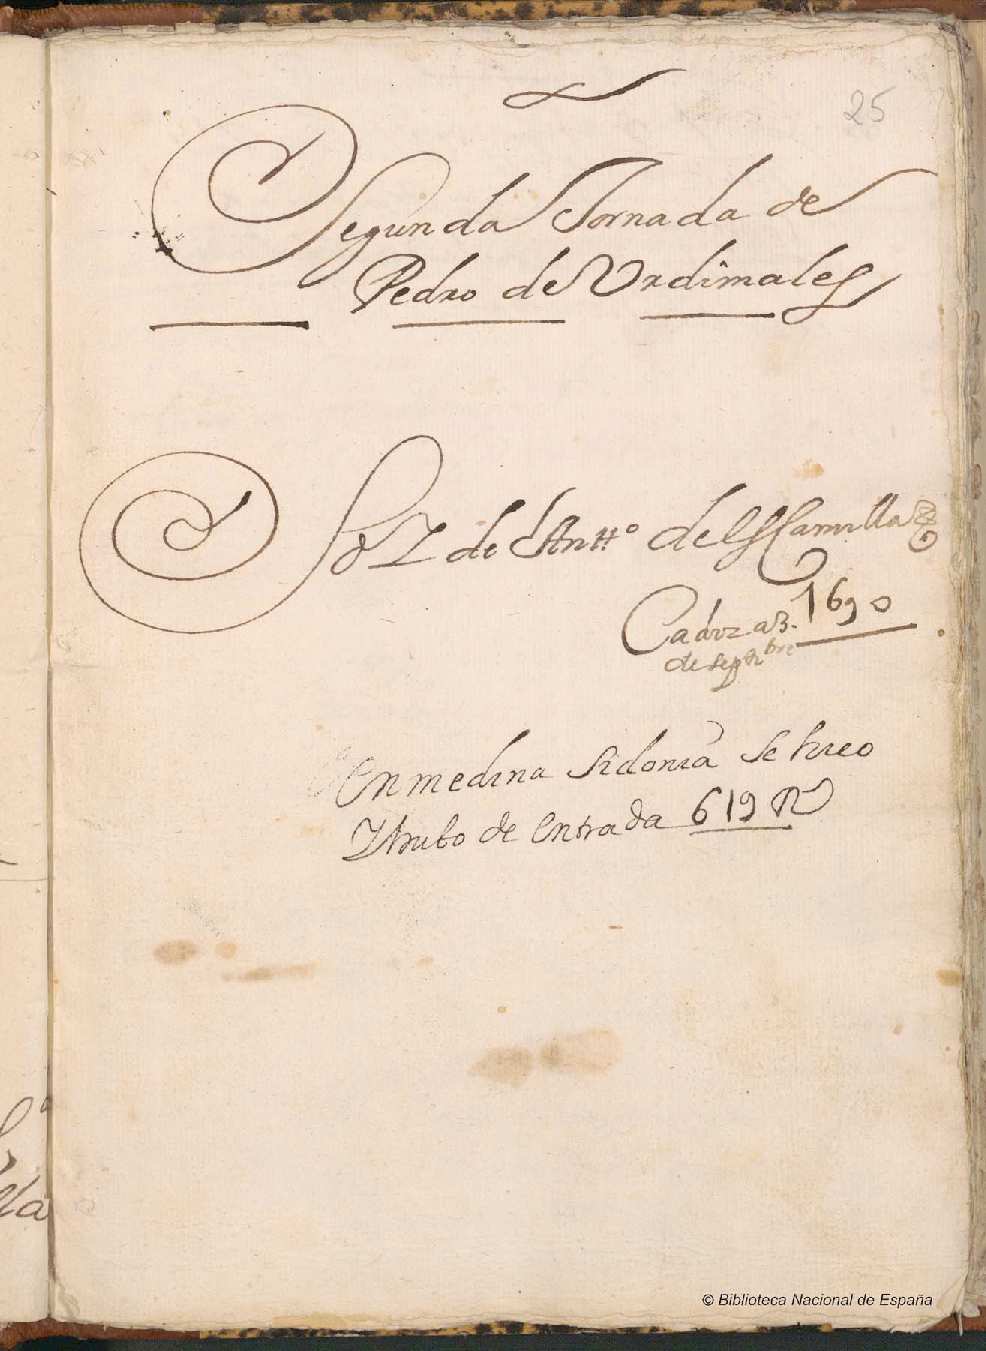 25
Segunda Jornada de
Pedro de Vrdimales
Soy de Antto del Escamilla
Cadiz a 3. 1690
de septbre
En medina Sidonia se hiço
Y hubo de entrada 619 R
© Biblioteca Nacional de España